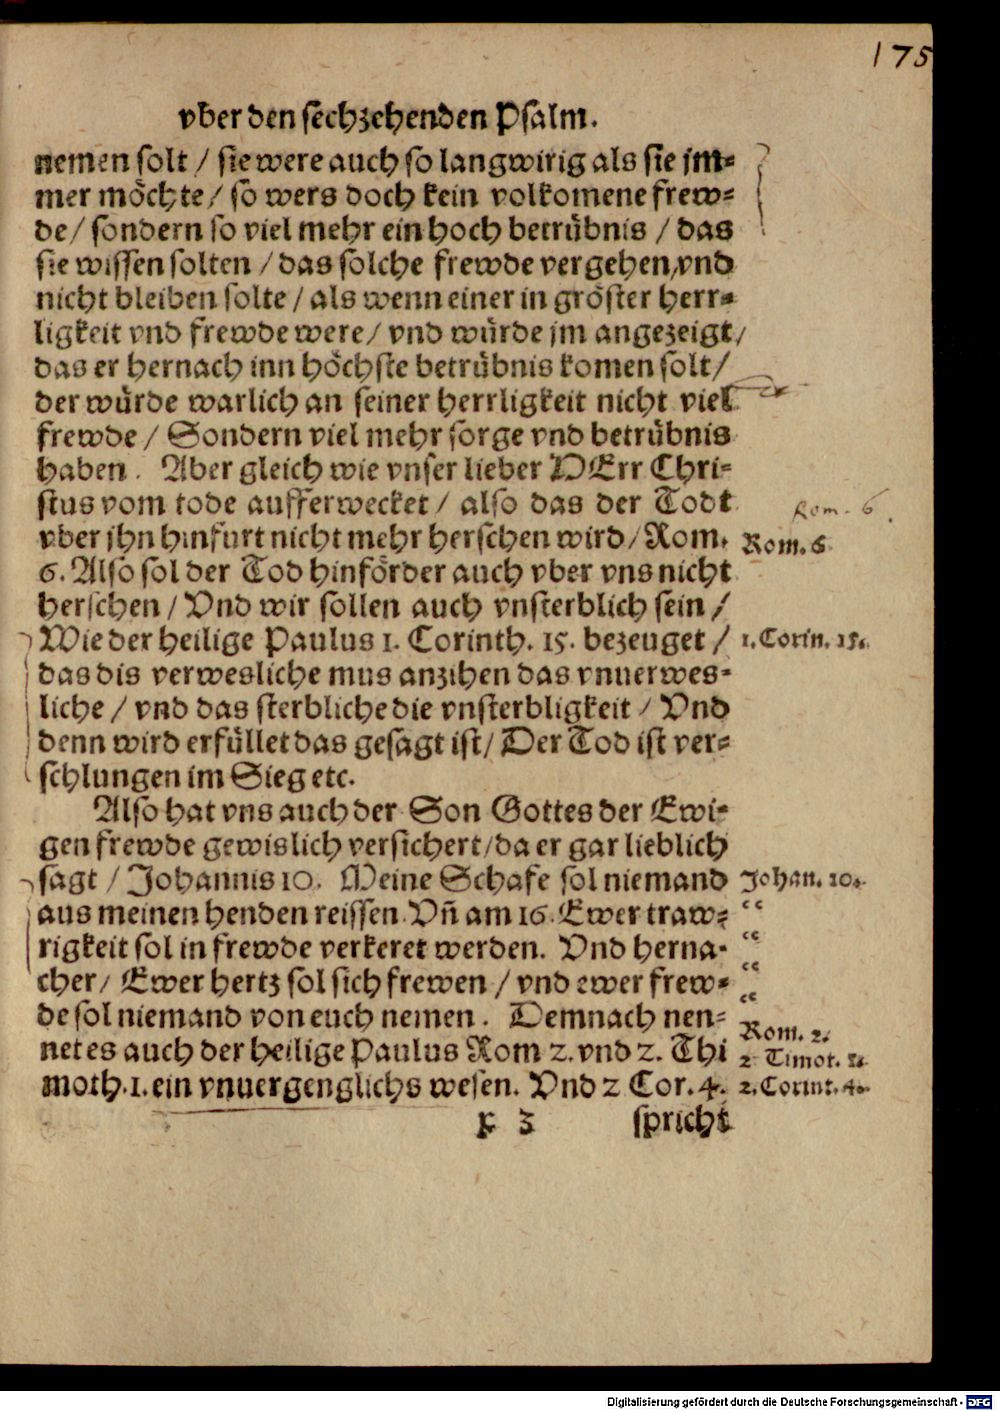 175
vber den sechzehenden Psalm.
nemen solt / sie were auch so langwirig als sie jm⸗
mer möchte / so wers doch kein volkomene frew⸗
de / sondern so viel mehr ein hoch betrübnis / das
sie wissen solten / das solche frewde vergehen / vnd
nicht bleiben solte / als wenn einer in gröster herr⸗
ligkeit vnd frewde were / vnd würde jm angezeigt /
das er hernach inn höchste betrübnis komen solt /
der würde warlich an seiner herrligkeit nicht viel
frewde / Sondern viel mehr sorge vnd betrübnis
haben. Aber gleich wie vnser lieber HErr Chri⸗
stus vom tode aufferwecket / also das der Todt
Rom. 6.
vber jhn hinfurt nicht mehr herschen wird / Rom. Rom. 6.
6. Also sol der Tod hinförder auch vber vns nicht
herschen / Vnd wir sollen auch vnsterblich sein /
Wie der heilige Paulus 1. Corinth. 15. bezeuget / 1. Corin. 15.
das dis verwesliche mus anzihen das vnuerwes⸗
liche / vnd das sterbliche die vnsterbligkeit / Vnd
denn wird erfüllet das gesagt ist / Der Tod ist ver⸗
schlungen im Sieg etc.
Also hat vns auch der Son Gottes der Ewi⸗
gen frewde gewislich versichert / da er gar lieblich
sagt / Johannis 10. Meine Schafe sol niemand Johan. 10.
aus meinen henden reissen. Vñ am 16. Ewer traw⸗ “
rigkeit sol in frewde verkeret werden. Vnd herna⸗ “
cher / Ewer hertz sol sich frewen / vnd ewer frew⸗ “
de sol niemand von euch nemen. Demnach nen⸗ “
Rom. 2.
net es auch der heilige Paulus Rom 2. vnd 2. Thi 2 Timot. 1.
moth. 1. ein vnuergenglichs wesen. Vnd 2 Cor. 4. 2. Corint. 4.
x 3 spricht
Digitalisierung gefördert durch die Deutsche Forschungsgemeinschaft - DFG